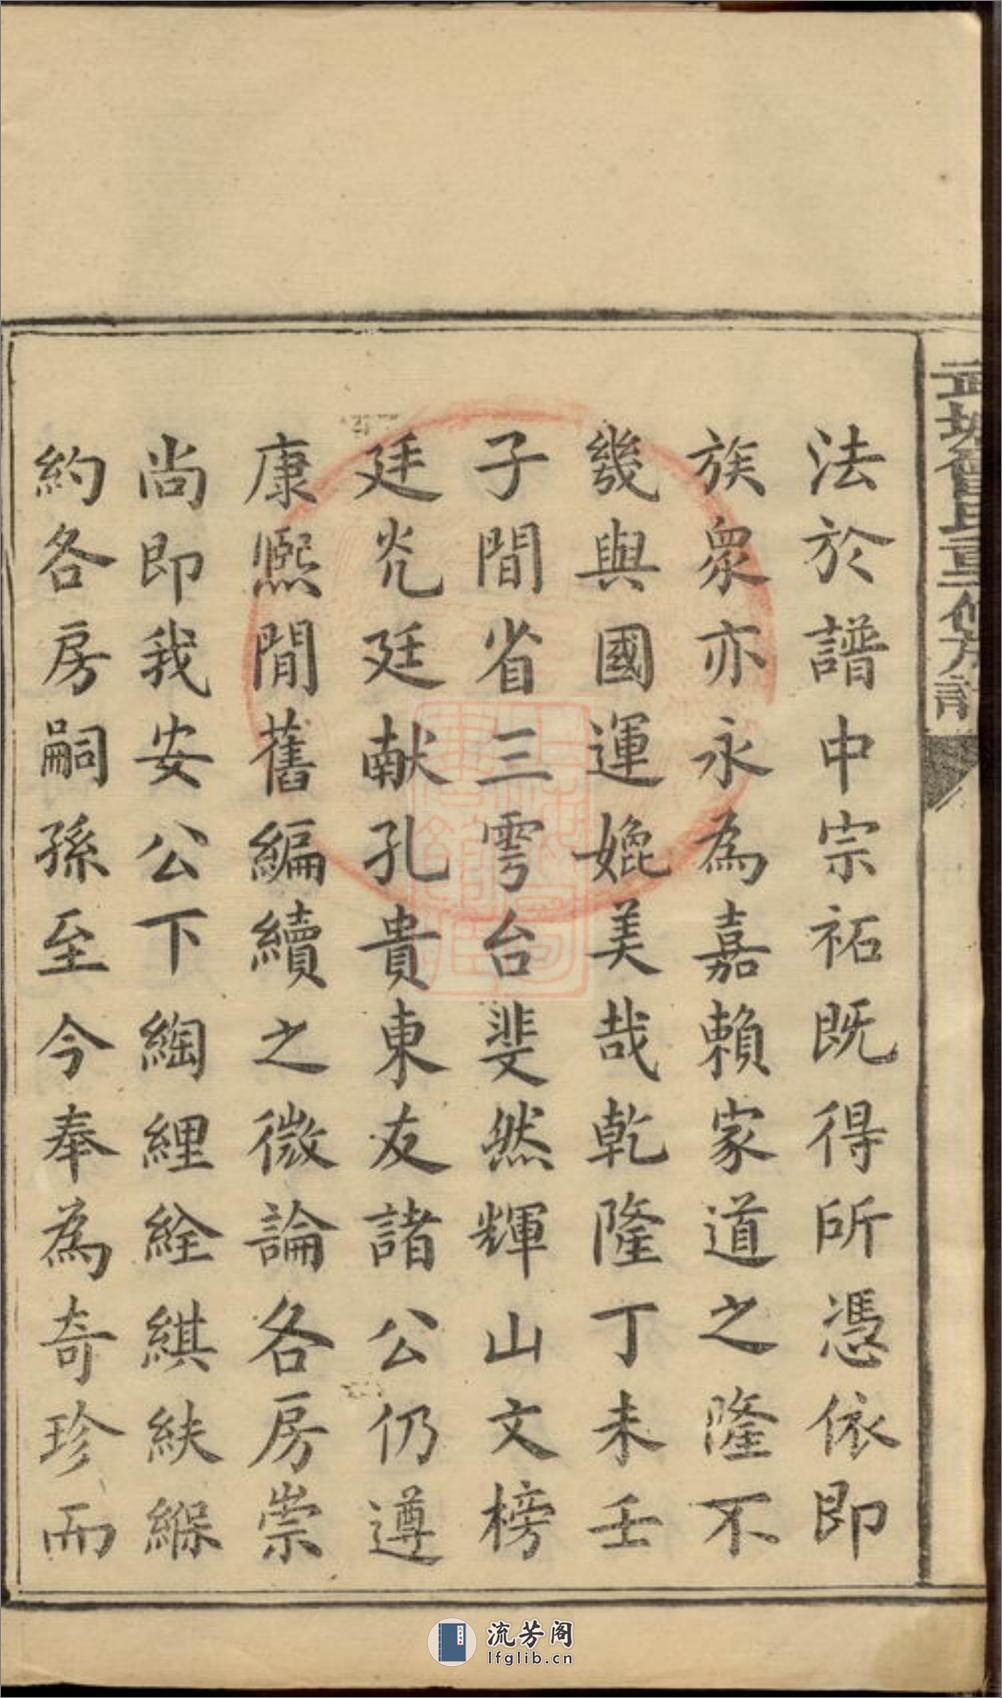 武城曾氏重修族譜
法於譜中宗祏既得所憑依即
族衆亦永為嘉賴家道之隆不
幾與國運媲美哉乾隆丁未壬
子間省三雩台斐然輝山文榜
廷光廷献孔貴東友諸公仍遵
康熙間舊編續之微論各房崇
尚即我安公下綯經絟綨紩緥
約各房嗣孫至今奉為奇珍而
流芳阁
lfglib.cn